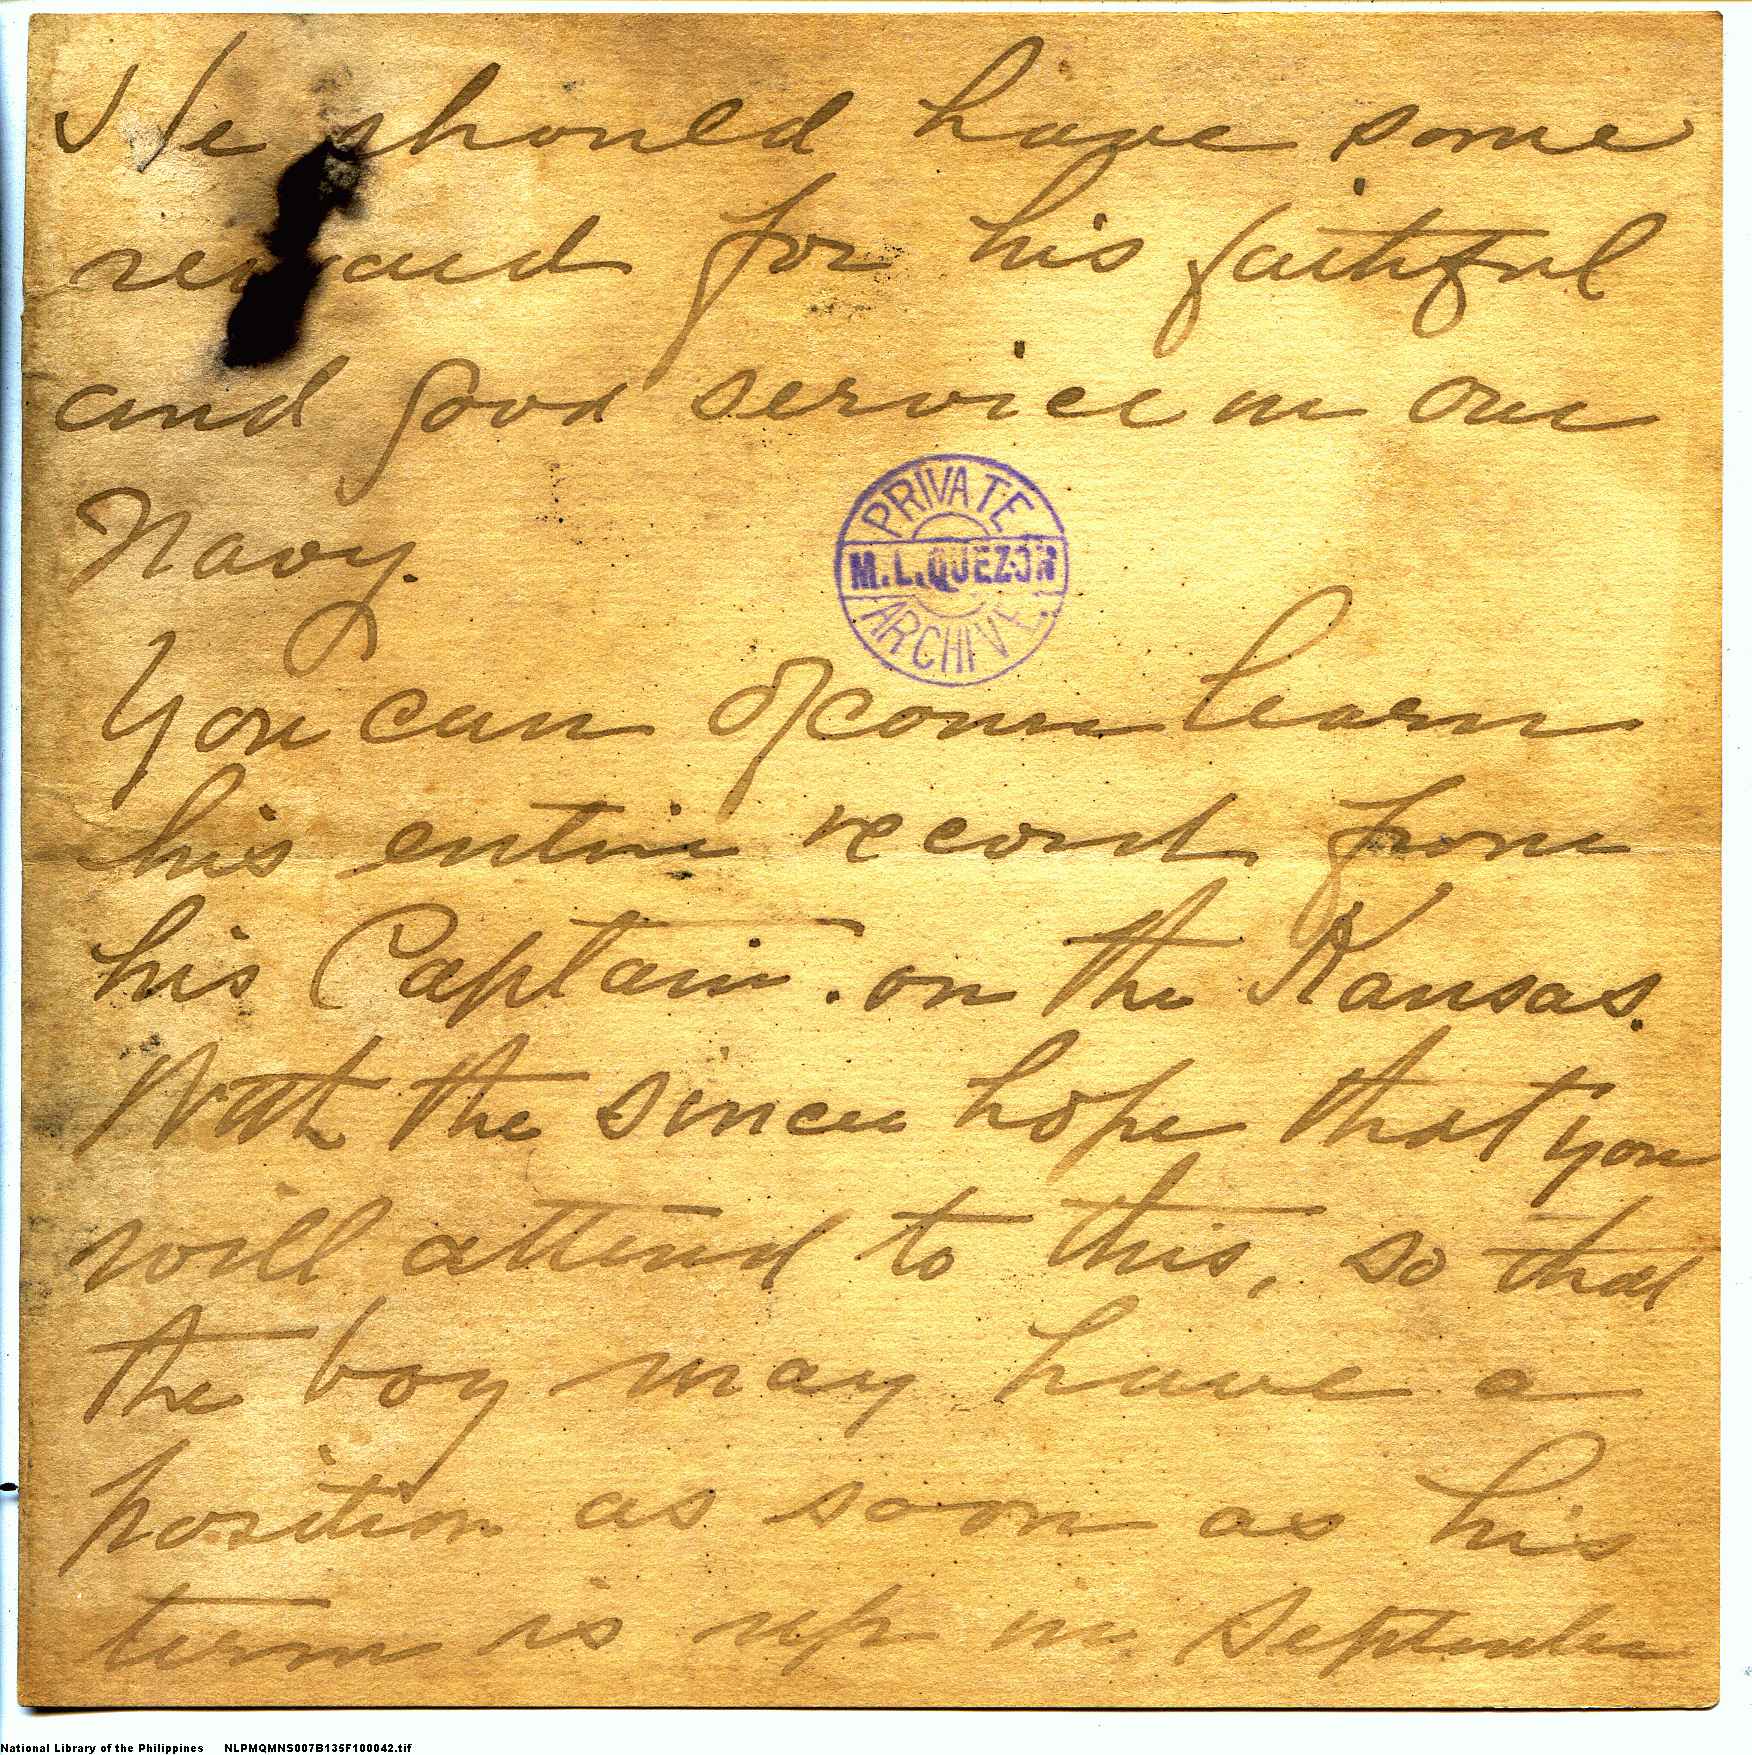 He should have some
reward for his faithful
and good service in our
Navy.
PRIVATE
M.L.QUEZON
ARCHIVE
You can of course learn
his entire record from
his Captain. on the Kansas.
With the sincere hope that you
will attend to this, so that
the boy may have a
position as soon as his
term is up in September
National Library of the Philippines NLPMQMNS007B135F100042.tif